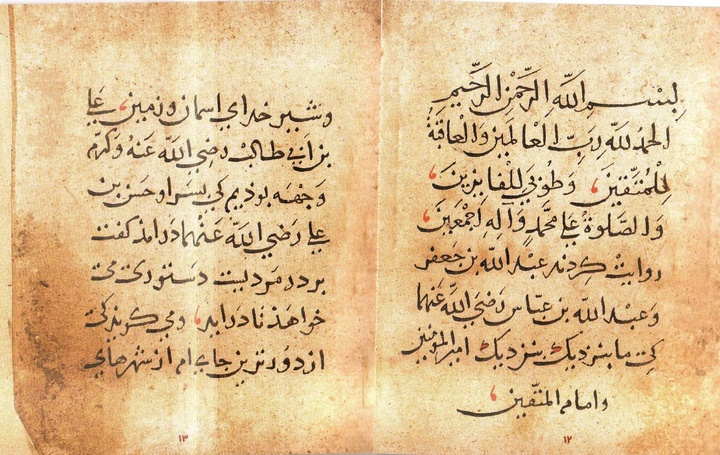 بِسْمِ اللَّهِ الرَّحْمٰنِ الرَّحِيمِ
الحمدُ للّه رَبِّ الْعالَمينَ وَالْعاقبَةُ
لِلْمُتَّقينَ، وَطُوبَي لِلْفايزينَ،
وَالصَّلوةُ عَلي محمَّدٍ وَآلِهِ اجْمَعِينَ،
روايت كردند عبْد اللّه بن جَعفر
وَعَبْد اللّه بن عبّاس رَضي اللَّهُ عَنْهما
كي ما بنزديك بنزديك امير المؤمنين
وامام المتّقين،
١٢
و شبير خداي اسمان و زمين، علي
بن اَبي طالبْ رضي اللّه عَنهُ وَكرم
وَجْهَه بوذيم كي پسر او حسن بن
علي رَضي اللّه عَنْهما درامذ كفت
بر در مرديست دستوري مي
خواهذ تا درايد، و مي كويد كي
از دورترين جاي ام از شهرهاي
١٣